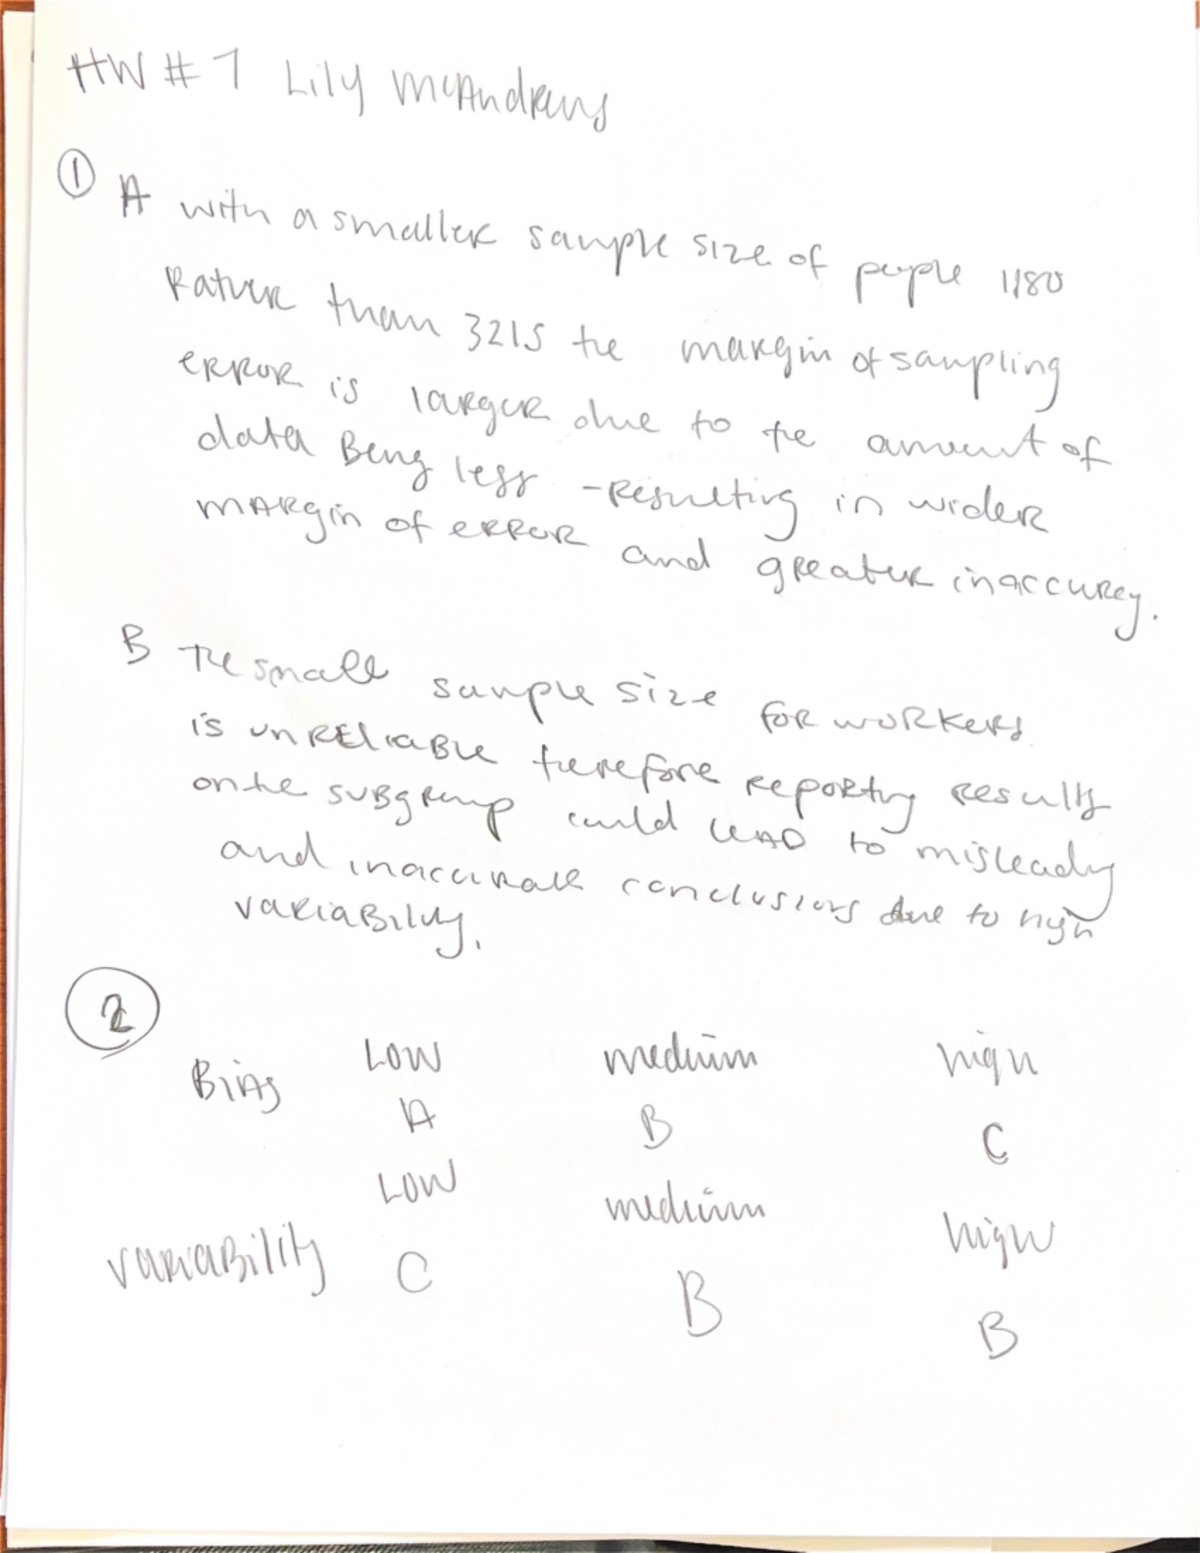 HW # 1 Lily McAndrews
① A with a smaller sample size of people 1180
Rather than 3215 the margin of sampling
ERROR is larger due to the amount of
data Being less - Resulting in wider
MARgin of ERROR and greater inaccurey.
B The small sample size for workers
is unRELiaBle therefore REPORting Results
on the SUBgroup could LEAD to misleading
and inaccurate conclusions due to high
vaRiaBility.
②
Bias Low medium high
A B C
Low medium high
vaRiaBility C B B